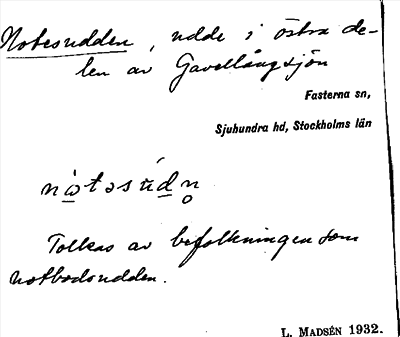 Notesudden, udde i östra de-
len av Gavellångsjön
Fasterna sn,
Sjuhundra hd, Stockholms län
nὼtəsúd̥ṇ
Tolkas av befolkningen som
notbodsudden.
L. MADSÉN 1932.